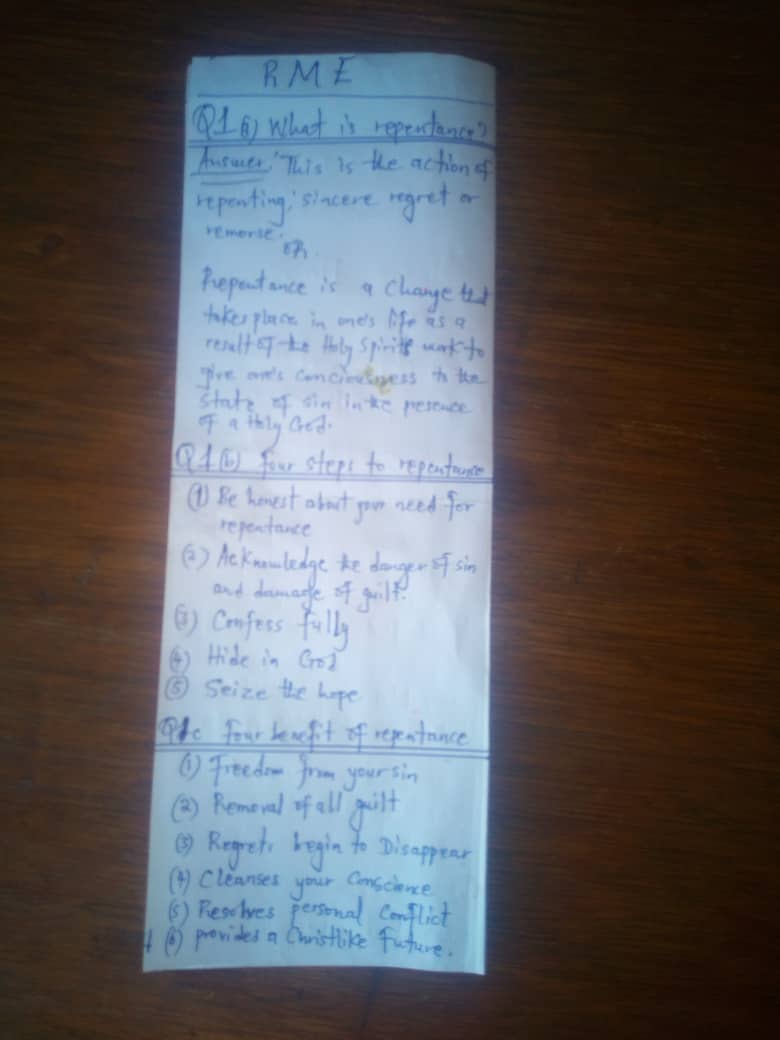 RME
Q1 a) What is repentance?
Answer: This is the action of
repenting; sincere regret or
remorse.
OR
Repentance is a change that
takes place in one's life as a
result of the Holy Spirits work to
give one's conciousness to the
state of sin in the presence
of a Holy God.
Q1(b) four steps to repentance
(1) Be honest about your need for
repentance
(2) Acknowledge the danger of sin
and damage of guilt.
(3) Confess fully
(4) Hide in God
(5) Seize the hope
Q1c four benefit of repentance
(1) freedom from your sin
(2) Removal of all guilt
(3) Regrets begin to Disappear
(4) Cleanses your Conscience
(5) Resolves personal Conflict
(6) provides a Christlike Future.